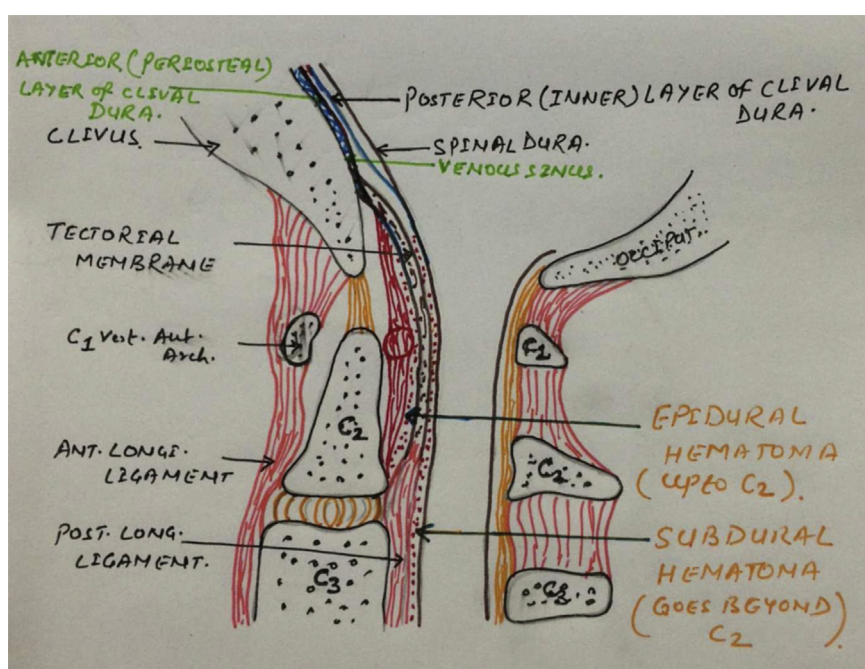 ANTERIOR (PERIOSTEAL)
LAYER OF CLIVAL
DURA.
CLIVUS
POSTERIOR (INNER) LAYER OF CLIVAL
DURA.
SPINAL DURA.
VENOUS SINUS.
TECTORIAL
MEMBRANE
OCCIPUT
C1 Vert. Ant.
Arch.
C1
C2
ANT. LONGI.
LIGAMENT
C2
EPIDURAL
HEMATOMA
(UPTO C2).
POST. LONG.
LIGAMENT.
C3
C3
SUBDURAL
HEMATOMA
(GOES BEYOND)
C2